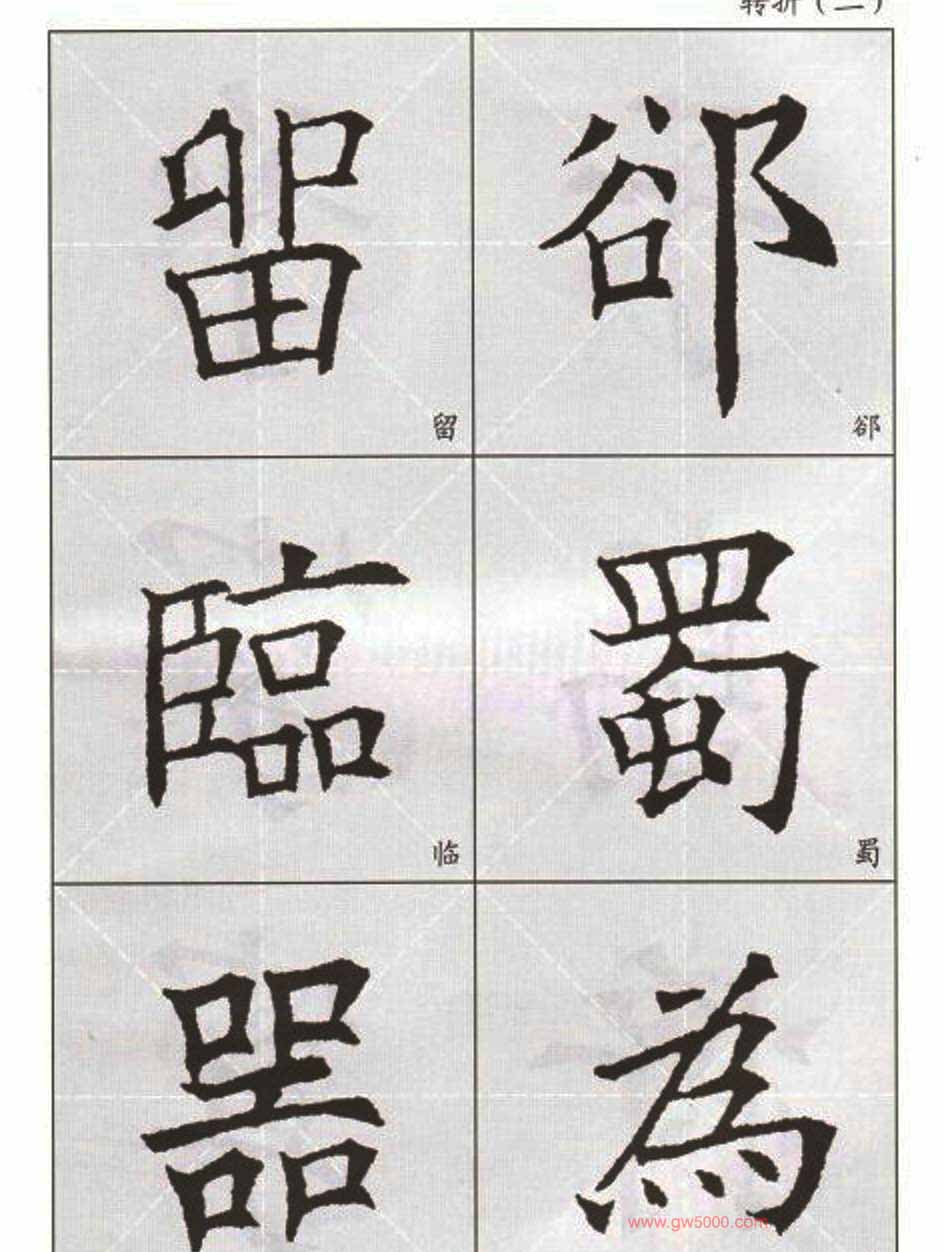 转折（二）
留 郤
留 郤
臨 蜀
临 蜀
噐 為
www.gw5000.com